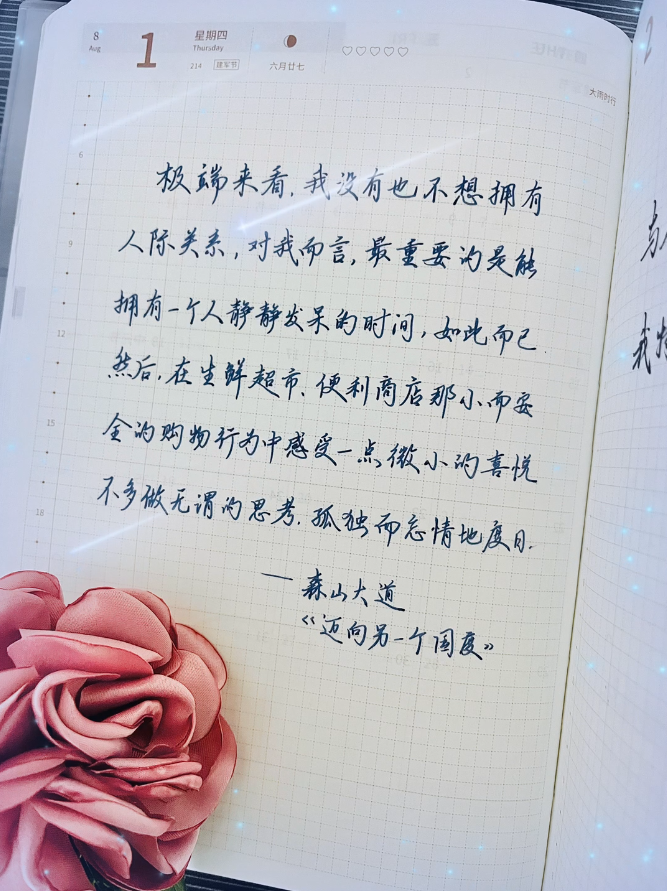 8
Aug
1
星期四
Thursday
214 建军节
六月廿七
大雨时行
6
9
12
15
18
极端来看,我没有也不想拥有
人际关系,对我而言,最重要的是能
拥有一个人静静发呆的时间,如此而已.
然后,在生鲜超市、便利商店那小而安
全的购物行为中感受一点微小的喜悦
不多做无谓的思考.孤独而忘情地度日.
— 森山大道
《迈向另一个国度》
2
我